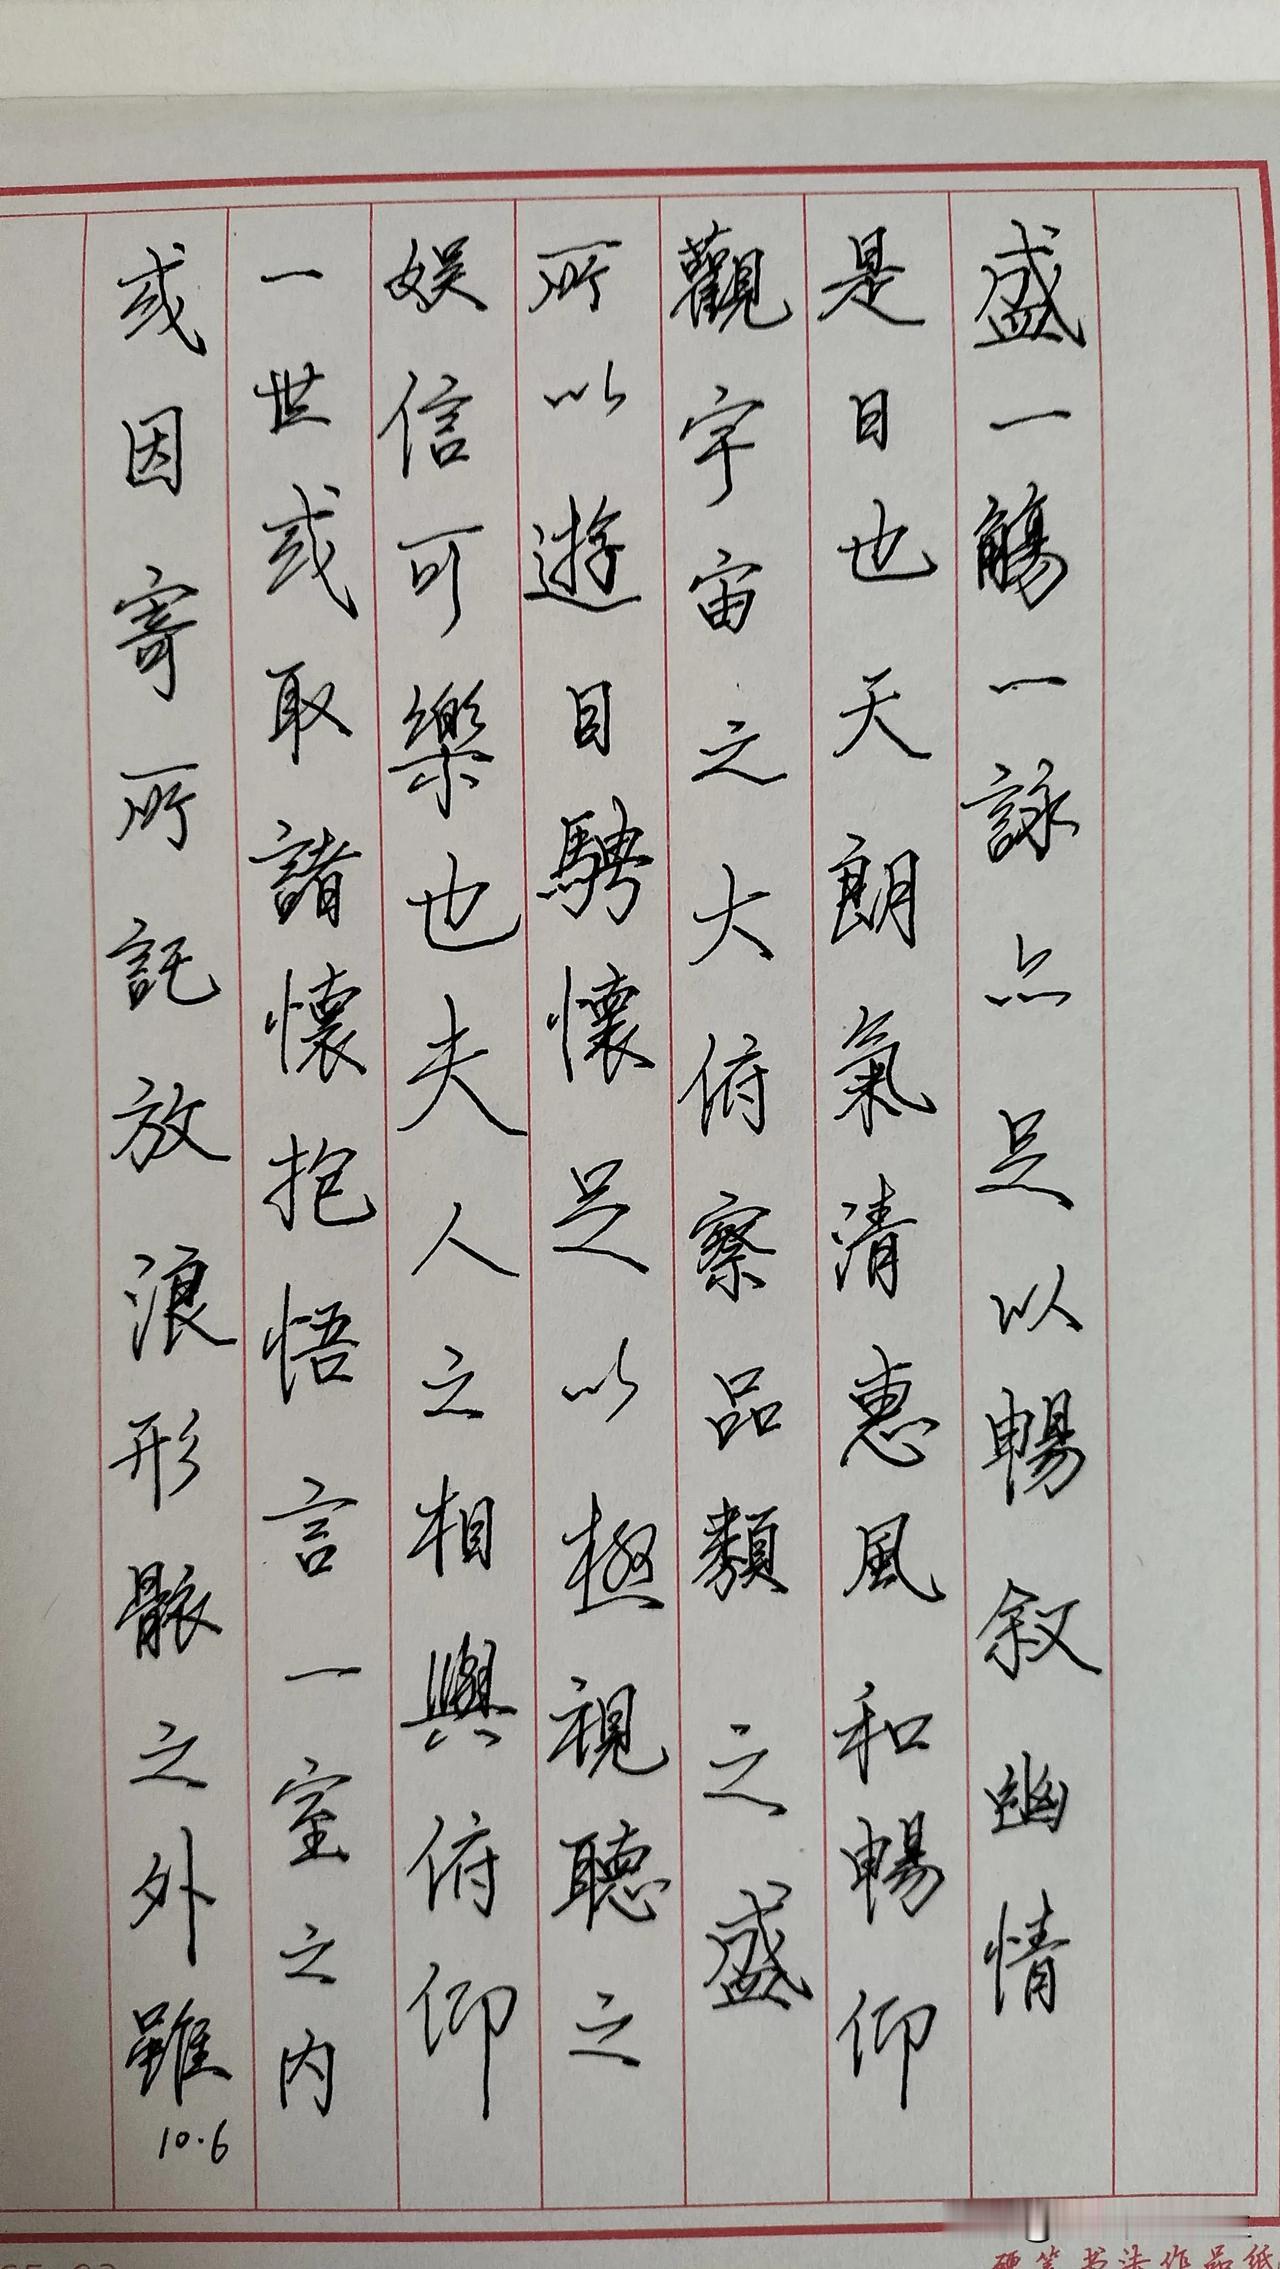 盛一觴一詠亦足以暢叙幽情
是日也天朗氣清惠風和暢仰
觀宇宙之大俯察品類之盛
所以遊目騁懷足以極視聽之
娱信可樂也夫人之相與俯仰
一世或取諸懷抱悟言一室之内
或因寄所託放浪形骸之外雖
10.6
硬笔书法作品纸